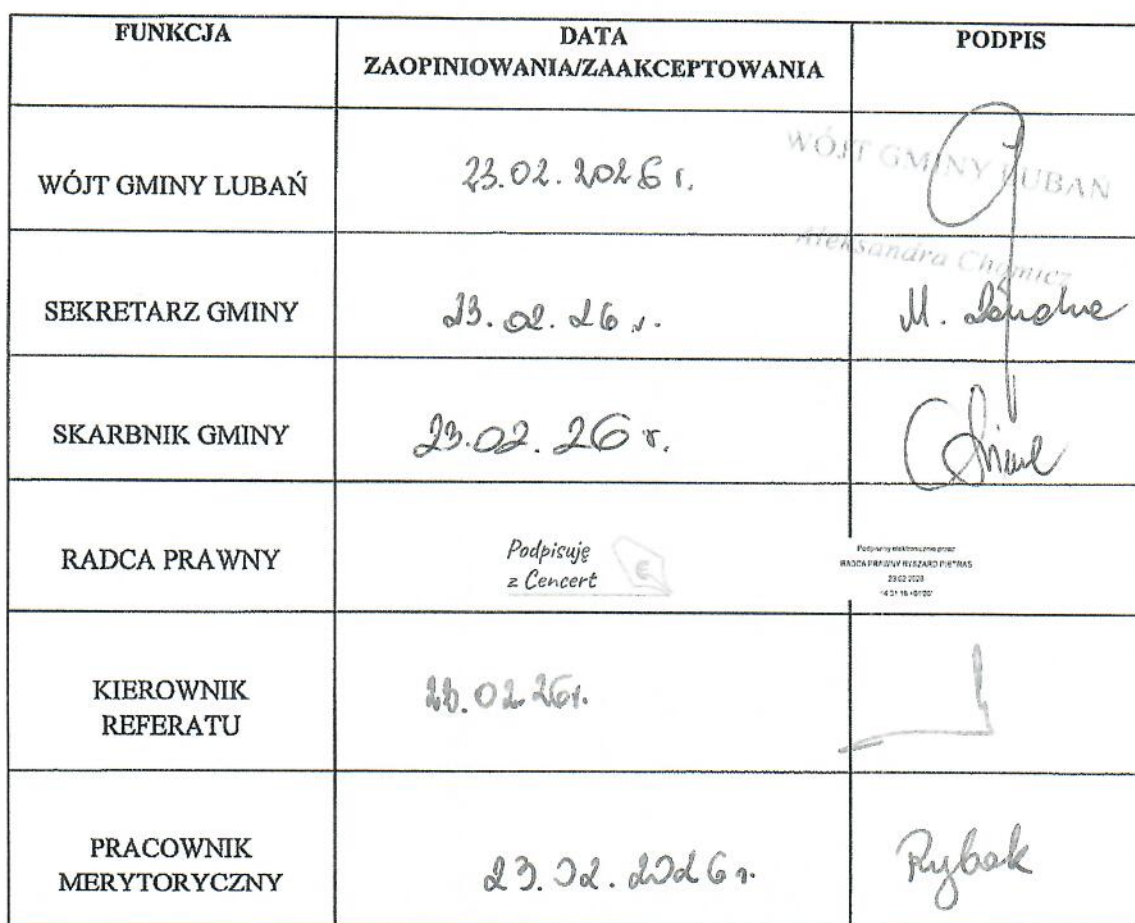 FUNKCJA
DATA
ZAOPINIOWANIA/ZAAKCEPTOWANIA
PODPIS
WÓJT GMINY LUBAŃ
23.02.2026 r.
WÓJT GMINY LUBAŃ
Aleksandra Chomicz
SEKRETARZ GMINY
23.02.26 r.
M.
SKARBNIK GMINY
23.02.26 r.
RADCA PRAWNY
Podpisuję
z Cencert
€
Podpisany elektronicznie przez
RADCA PRAWNY RYSZARD PIETRAS
KIEROWNIK
REFERATU
23.02.26r.
PRACOWNIK
MERYTORYCZNY
23.02.2026 r.
Rybak